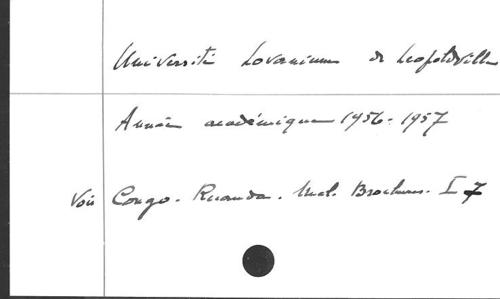 Université Lovanium de Leopoldville
Année académique 1956-1957
Voir Congo. Ruanda. Mél. Brochures. I 7